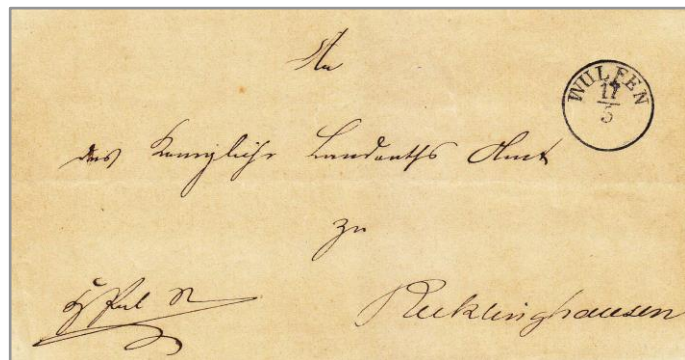 An
WULFEN
17
5
das Königliche Landraths Amt
zu
Recklinghausen